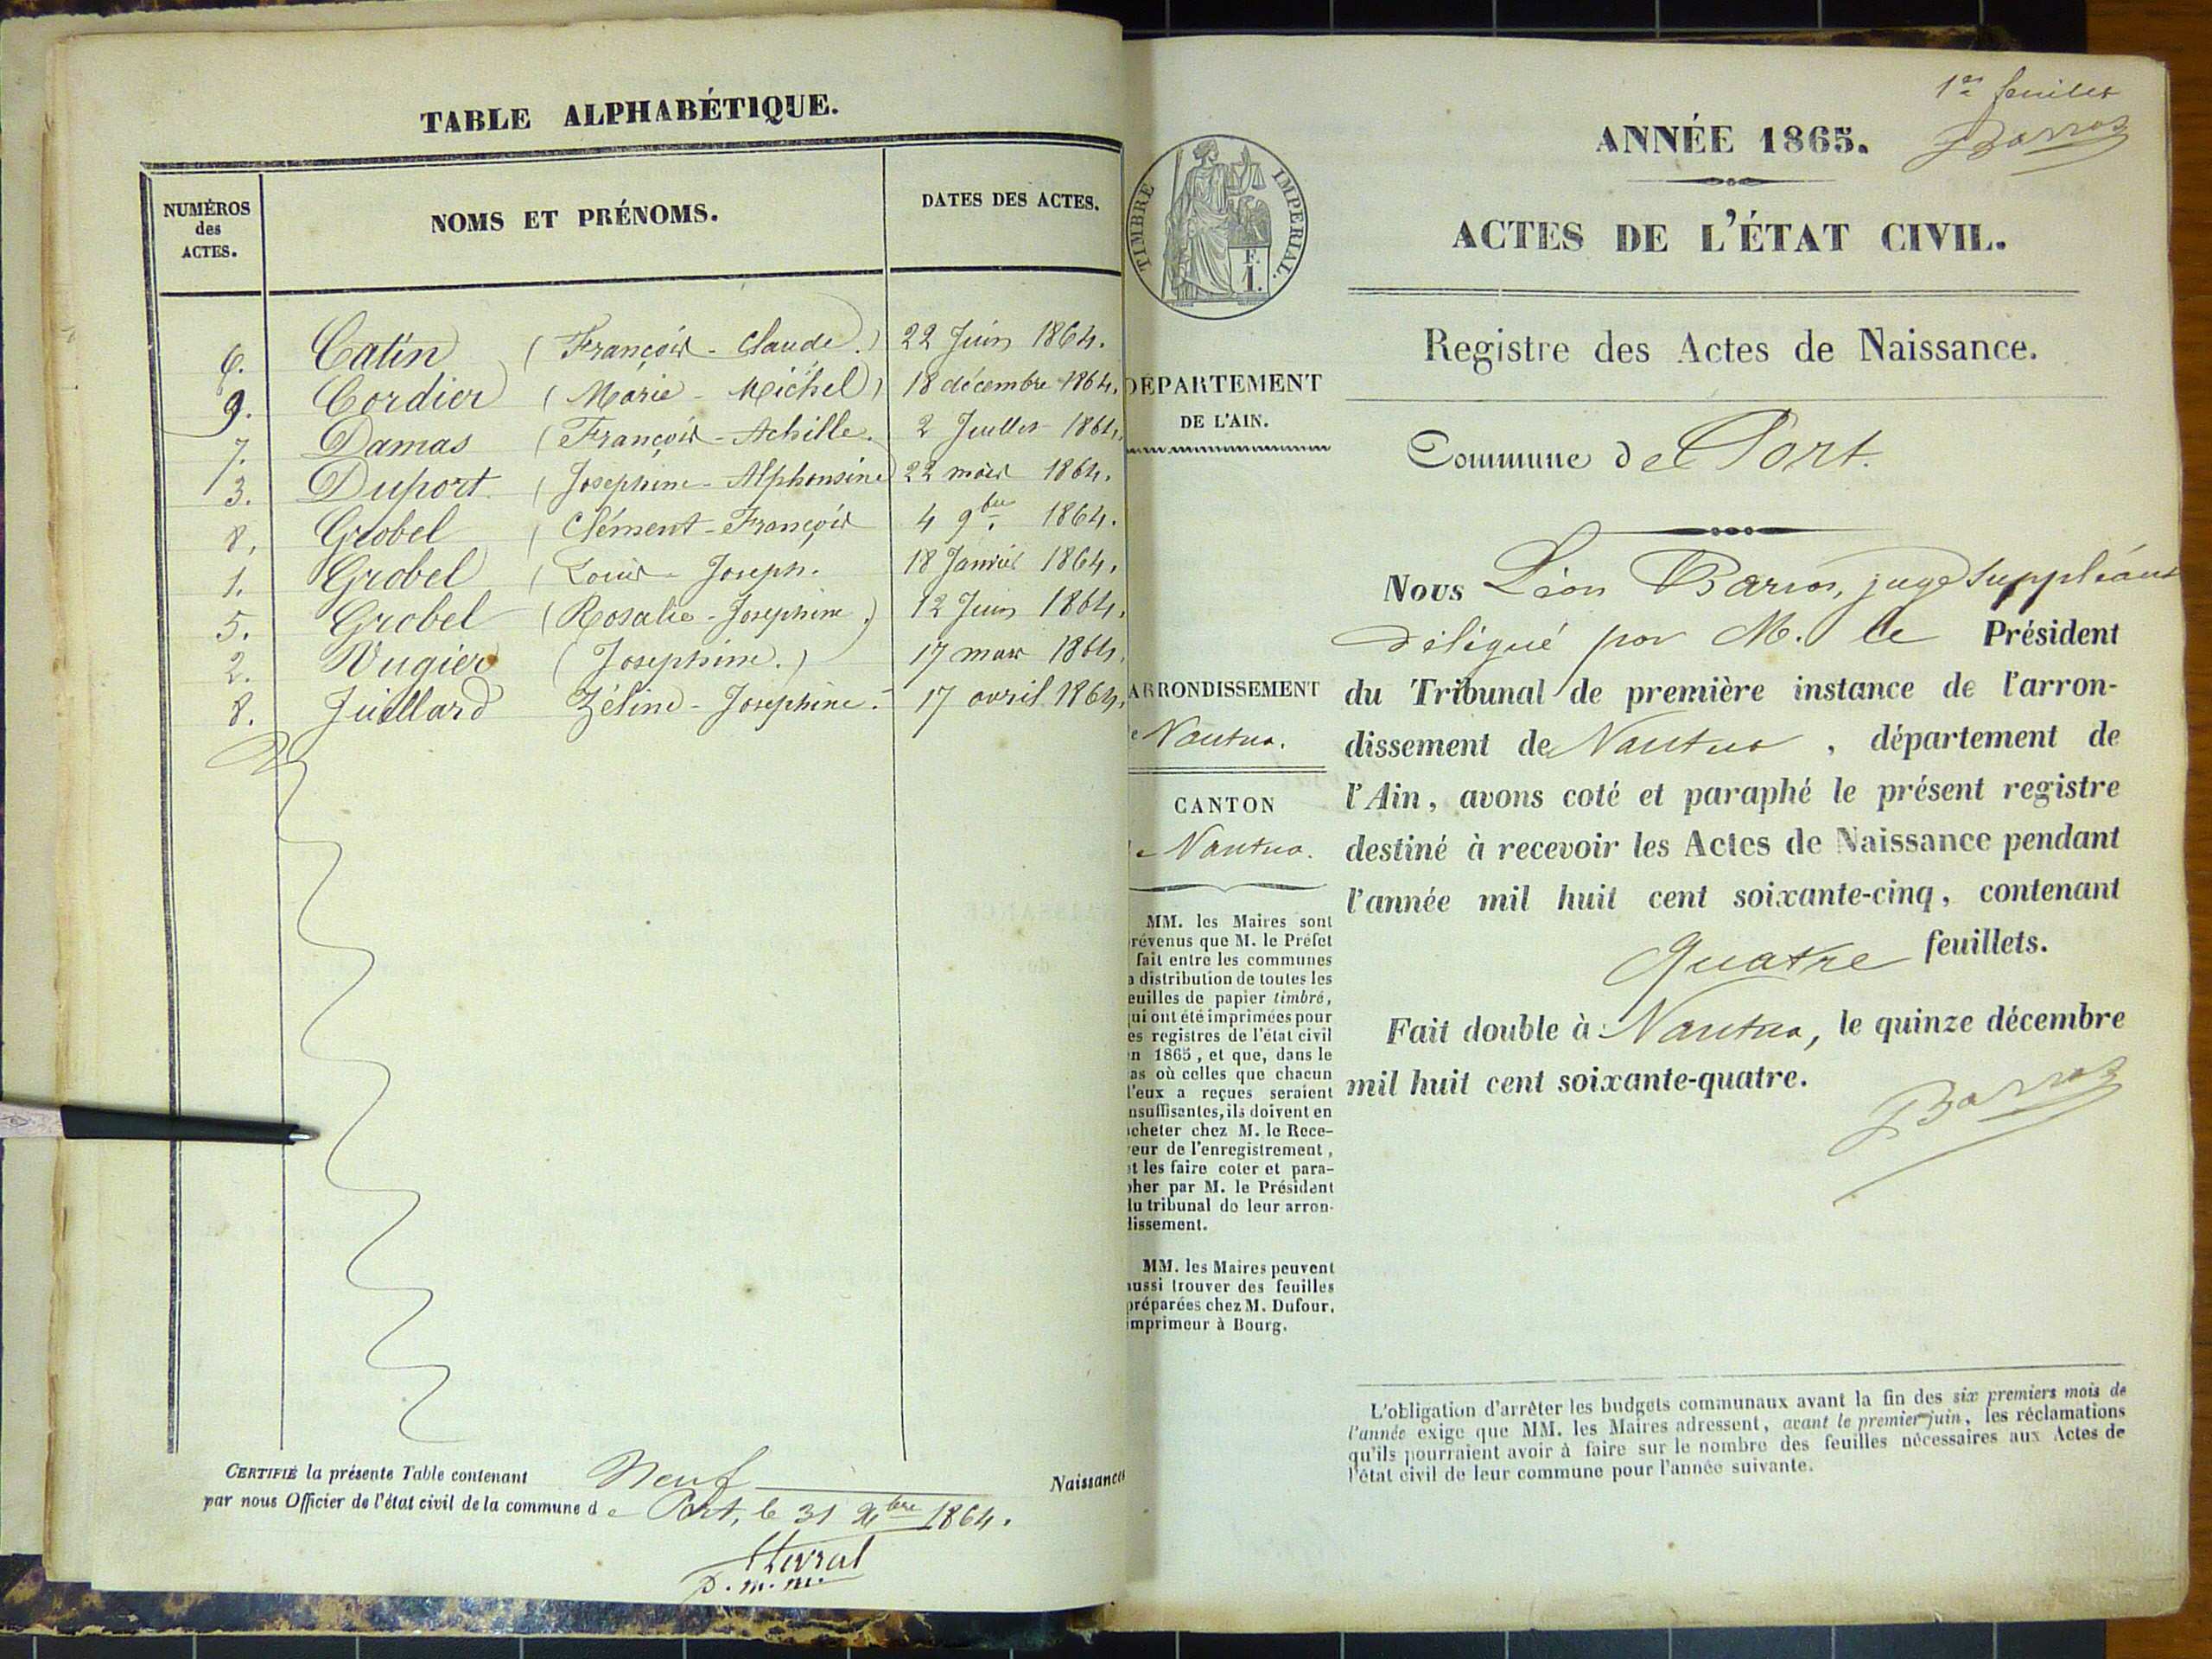 TABLE ALPHABÉTIQUE.
NUMÉROS
des
ACTES.
NOMS ET PRÉNOMS.
DATES DES ACTES.
6. Catin (François-Claude.) 22 Juin 1864.
9. Cordier (Marie-Michel) 18 décembre 1864.
7. Damas (François-Achille. 2 Juillet 1864.
3. Duport (Josephine-Alphonsine) 22 mars 1864.
8. Grobel (Clément-François 4 9bre 1864.
1. Grobel (Louis-Joseph. 18 Janvier 1864.
5. Grobel (Rosalie-Josephine.) 12 Juin 1864.
2. (Josephine.) 17 mars 1864.
8. Juillard Zéline-Josephine. 17 avril 1864.
CERTIFIÉ la présente Table contenant Neuf Naissances
par nous Officier de l'état civil de la commune de Port, le 31 Xbre 1864.
1er feuillet
ANNÉE 1865.
ACTES DE L'ÉTAT CIVIL.
TIMBRE IMPERIAL.
F.
1.
Registre des Actes de Naissance.
DÉPARTEMENT
DE L'AIN.
Commune de Port.
ARRONDISSEMENT
e Nantua.
CANTON
e Nantua.
MM. les Maires sont
révenus que M. le Préfet
fait entre les communes
a distribution de toutes les
euilles de papier timbré,
ui ont été imprimées pour
es registres de l'état civil
n 1865, et que, dans le
as où celles que chacun
l'eux a reçues seraient
nsuffisantes, ils doivent en
cheter chez M. le Rece-
eur de l'enregistrement,
t les faire coter et para-
pher par M. le Président
lu tribunal de leur arron-
lissement.
MM. les Maires peuvent
aussi trouver des feuilles
préparées chez M. Dufour,
imprimeur à Bourg.
Nous Léon Barros, juge suppléant
délégué par M. le Président
du Tribunal de première instance de l'arron-
dissement de Nantua, département de
l'Ain, avons coté et paraphé le présent registre
destiné à recevoir les Actes de Naissance pendant
l'année mil huit cent soixante-cinq, contenant
Quatre feuillets.
Fait double à Nantua, le quinze décembre
mil huit cent soixante-quatre.
L'obligation d'arrêter les budgets communaux avant la fin des six premiers mois de
l'année exige que MM. les Maires adressent, avant le premier juin, les réclamations
qu'ils pourraient avoir à faire sur le nombre des feuilles nécessaires aux Actes de
l'état civil de leur commune pour l'année suivante.